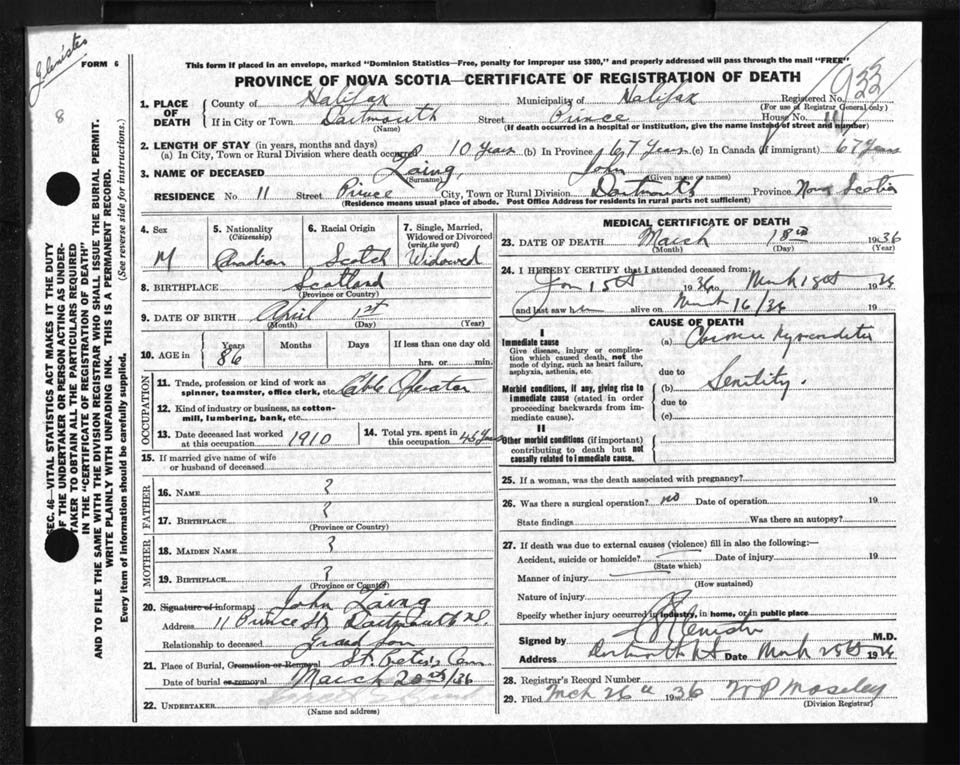 Glenister
FORM 6
8
This form if placed in an envelope, marked "Dominion Statistics—Free, penalty for improper use $300," and properly addressed will pass through the mail "FREE"
PROVINCE OF NOVA SCOTIA—CERTIFICATE OF REGISTRATION OF DEATH
933
1. PLACE OF DEATH County of Halifax Municipality of Halifax Registered No.
(For use of Registrar General only)
If in City or Town Dartmouth Street Prince House No. 11
(Name) (If death occurred in a hospital or institution, give the name instead of street and number)
2. LENGTH OF STAY (in years, months and days)
(a) In City, Town or Rural Division where death occurred 10 Years (b) In Province 67 Years (c) In Canada (if immigrant) 67 Years
3. NAME OF DECEASED Laing, John
(Surname) (Given name or names)
RESIDENCE No. 11 Street Prince City, Town or Rural Division Dartmouth Province Nova Scotia
(Residence means usual place of abode. Post Office Address for residents in rural parts not sufficient)
4. Sex M
5. Nationality (Citizenship) Canadian
6. Racial Origin Scotch
7. Single, Married, Widowed or Divorced (write the word) Widowed
8. BIRTHPLACE Scotland
(Province or Country)
9. DATE OF BIRTH April 1st
(Month) (Day) (Year)
10. AGE in Years Months Days If less than one day old
86 hrs. or min.
OCCUPATION
11. Trade, profession or kind of work as spinner, teamster, office clerk, etc. Cable Operator
12. Kind of industry or business, as cotton-mill, lumbering, bank, etc.
13. Date deceased last worked at this occupation 1910
14. Total yrs. spent in this occupation 45 Years
15. If married give name of wife or husband of deceased
FATHER
16. NAME ?
17. BIRTHPLACE ?
(Province or Country)
MOTHER
18. MAIDEN NAME ?
19. BIRTHPLACE ?
(Province or Country)
20. Signature of informant John Laing
Address 11 Prince St Dartmouth N.S.
Relationship to deceased Grand Son
21. Place of Burial, Cremation or Removal St. Peter's Cem
Date of burial or removal March 20th/36
22. UNDERTAKER
(Name and address)
MEDICAL CERTIFICATE OF DEATH
23. DATE OF DEATH March 18th 1936
(Month) (Day) (Year)
24. I HEREBY CERTIFY that I attended deceased from:
Jan 15th 1936 to March 18th 1936
and last saw him alive on March 16/36 19
CAUSE OF DEATH
I
Immediate cause
Give disease, injury or complication which caused death, not the mode of dying, such as heart failure, asphyxia, asthenia, etc.
(a) Chronic Myocarditis
due to
Morbid conditions, if any, giving rise to immediate cause (stated in order proceeding backwards from immediate cause).
(b) Senility.
due to
(c)
II
Other morbid conditions (if important) contributing to death but not causally related to immediate cause.
25. If a woman, was the death associated with pregnancy?
26. Was there a surgical operation? no Date of operation 19
State findings Was there an autopsy?
27. If death was due to external causes (violence) fill in also the following:—
Accident, suicide or homicide? Date of injury 19
(State which)
Manner of injury
(How sustained)
Nature of injury
Specify whether injury occurred in industry, in home, or in public place
Signed by Glenister M.D.
Address Dartmouth N.S Date March 25th 1936
28. Registrar's Record Number
29. Filed Mch 26th 1936 W P Moseley
(Division Registrar)
SEC. 46—VITAL STATISTICS ACT MAKES IT THE DUTY
OF THE UNDERTAKER OR PERSON ACTING AS UNDER-
TAKER TO OBTAIN ALL THE PARTICULARS REQUIRED
IN THE "CERTIFICATE OF REGISTRATION OF DEATH"
AND TO FILE THE SAME WITH THE DIVISION REGISTRAR WHO SHALL ISSUE THE BURIAL PERMIT.
WRITE PLAINLY WITH UNFADING INK. THIS IS A PERMANENT RECORD.
Every item of information should be carefully supplied. (See reverse side for instructions.)